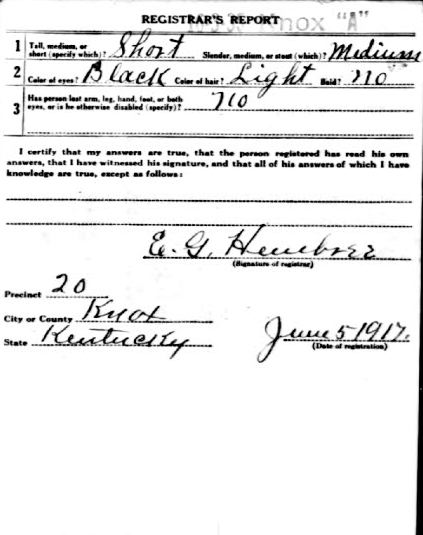 REGISTRAR'S REPORT nox "A"
1 Tall, medium, or short (specify which)? Short Slender, medium, or stout (which)? Medium
2 Color of eyes? Black Color of hair? Light Bald? no
3 Has person lost arm, leg, hand, foot, or both eyes, or is he otherwise disabled (specify)? no
I certify that my answers are true, that the person registered has read his own
answers, that I have witnessed his signature, and that all of his answers of which I have
knowledge are true, except as follows:
E. G.
(Signature of registrar)
Precinct 20
City or County Knox
State Kentucky
June 5 1917.
(Date of registration)